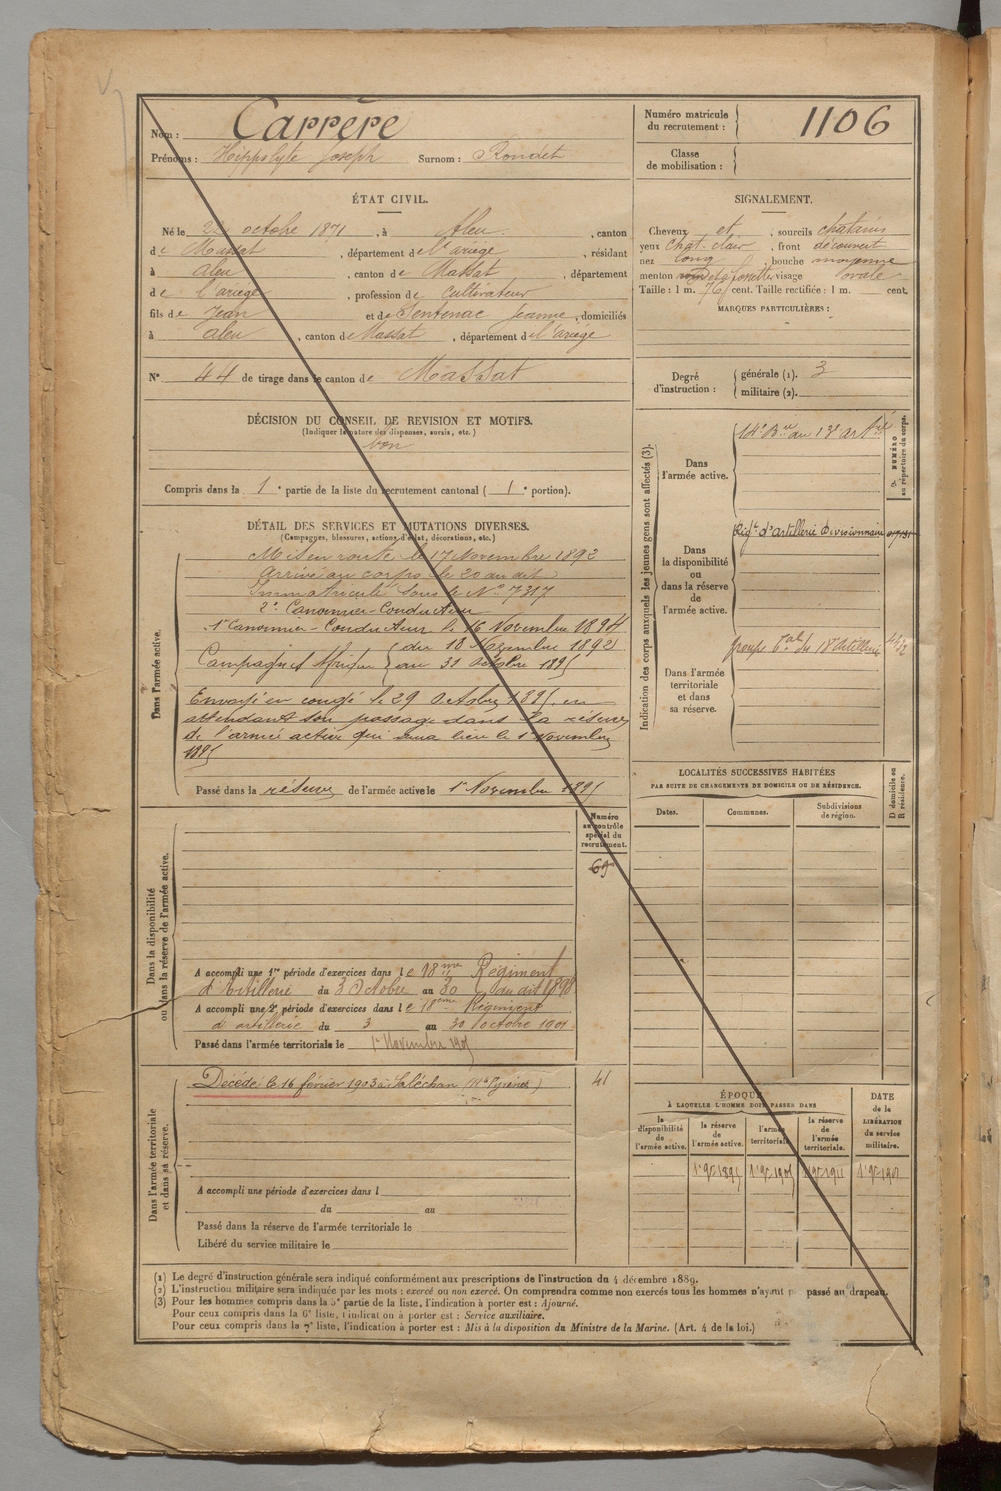 Nom : Carrère
Prénoms : Hippolyte Joseph Surnom : Rondet
Numéro matricule du recrutement : 1106
Classe de mobilisation :
ÉTAT CIVIL.
Né le 22 octobre 1871, à Aleu, canton
de Massat, département de l'ariège, résidant
à aleu, canton de Massat, département
de l'ariège, profession de cultivateur
fils de Jean et de Sentenac Jeanne, domiciliés
à aleu, canton de Massat, département de l'ariège
N° 44 de tirage dans le canton de Massat
SIGNALEMENT.
Cheveux et, sourcils chatains
yeux chat. clair, front découvert
nez long, bouche moyenne
menton fossette visage ovale
Taille : 1 m. 76 cent. Taille rectifiée : 1 m. cent.
MARQUES PARTICULIÈRES :
Degré d'instruction :
générale (1). 3
militaire (2).
DÉCISION DU CONSEIL DE REVISION ET MOTIFS.
(Indiquer la nature des dispenses, sursis, etc.)
bon
Compris dans la 1e partie de la liste du recrutement cantonal ( 1e portion).
DÉTAIL DES SERVICES ET MUTATIONS DIVERSES.
(Campagnes, blessures, actions d'éclat, décorations, etc.)
Dans l'armée active.
Mis en route le 17 Novembre 1892
Arrivé au corps le 20 du dit
Immatriculé sous le N° 7317
2e Canonnier-Conducteur
1er Canonnier-Conducteur le 16 Novembre 1894
Campagnes Afrique du 18 Novembre 1892
au 31 Octobre 1895
Envoyé en congé le 29 Octobre 1895, en
attendant son passage dans la réserve
de l'armée active qui aura lieu le 1er Novembre
1895
Passé dans la réserve de l'armée active le 1er Novembre 1895
Indication des corps auxquels les jeunes gens sont affectés (3).
NUMÉRO au répertoire du corps.
Dans l'armée active.
14e Bie au 13e artie
Dans la disponibilité ou dans la réserve de l'armée active.
Rigt d'artillerie Divisionnaire
Dans l'armée territoriale et dans sa réserve.
Groupe tal du 18e artillerie
LOCALITÉS SUCCESSIVES HABITÉES
PAR SUITE DE CHANGEMENTS DE DOMICILE OU DE RÉSIDENCE.
Dates. Communes. Subdivisions de région. D domicile ou R résidence.
Dans la disponibilité ou dans la réserve de l'armée active.
Numéro au contrôle spécial du recrutement.
69
A accompli une 1re période d'exercices dans le 18me Régiment
d'Artillerie du 3 Octobre au 30 du dit 1898
A accompli une 2e période d'exercices dans le 18eme Régiment
d'artillerie du 3 au 30 Octobre 1901
Passé dans l'armée territoriale le 1er Novembre 1905
Dans l'armée territoriale et dans sa réserve.
Décédé le 16 février 1903 à Saléchan (Htes Pyrénées) 41
A accompli une période d'exercices dans l
du au
Passé dans la réserve de l'armée territoriale le
Libéré du service militaire le
ÉPOQUE
À LAQUELLE L'HOMME DOIT PASSER DANS
la disponibilité de l'armée active. la réserve de l'armée active. l'armée territoriale. la réserve de l'armée territoriale.
DATE de la LIBÉRATION du service militaire.
1er 9bre 1895 1er 9bre 1905 1er 9bre 1911
(1) Le degré d'instruction générale sera indiqué conformément aux prescriptions de l'instruction du 4 décembre 1889.
(2) L'instruction militaire sera indiquée par les mots : exercé ou non exercé. On comprendra comme non exercés tous les hommes n'ayant p passé au drapeau.
(3) Pour les hommes compris dans la 5e partie de la liste, l'indication à porter est : Ajourné.
Pour ceux compris dans la 6e liste, l'indication à porter est : Service auxiliaire.
Pour ceux compris dans la 7e liste, l'indication à porter est : Mis à la disposition du Ministre de la Marine. (Art. 4 de la loi.)